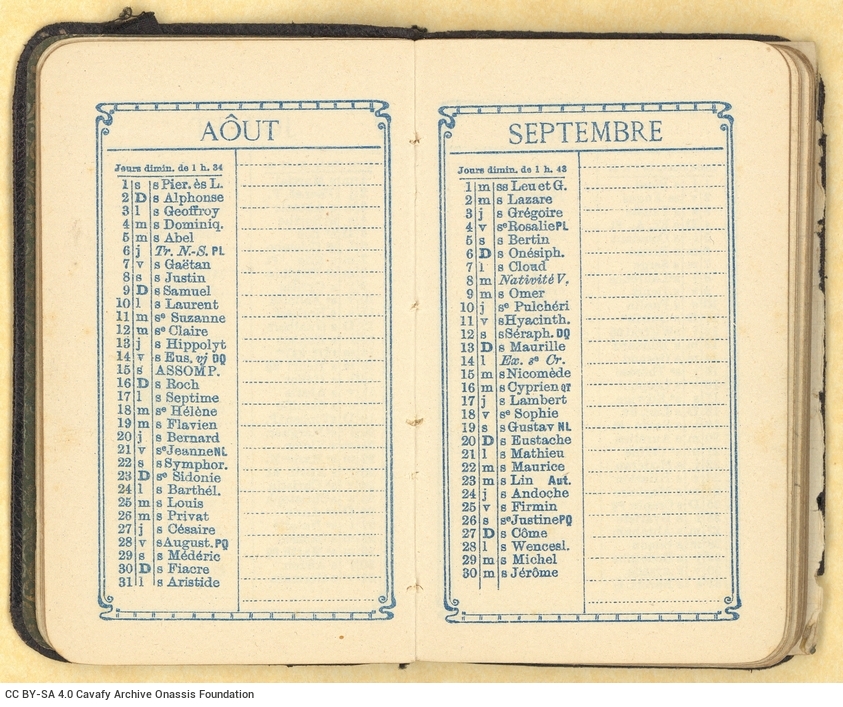 AÔUT
Jours dimin. de 1 h. 34
1 s s Pier. ès L.
2 D s Alphonse
3 l s Geoffroy
4 m s Dominiq.
5 m s Abel
6 j Tr. N.-S. PL
7 v s Gaëtan
8 s s Justin
9 D s Samuel
10 l s Laurent
11 m sᵉ Suzanne
12 m sᵉ Claire
13 j s Hippolyt
14 v s Eus. vj DQ
15 s ASSOMP.
16 D s Roch
17 l s Septime
18 m sᵉ Hélène
19 m s Flavien
20 j s Bernard
21 v sᵉ Jeanne NL
22 s s Symphor.
23 D sᵉ Sidonie
24 l s Barthél.
25 m s Louis
26 m s Privat
27 j s Césaire
28 v s August. PQ
29 s s Médéric
30 D s Fiacre
31 l s Aristide
SEPTEMBRE
Jours dimin. de 1 h. 43
1 m ss Leu et G.
2 m s Lazare
3 j s Grégoire
4 v sᵉ Rosalie PL
5 s s Bertin
6 D s Onésiph.
7 l s Cloud
8 m Nativité V.
9 m s Omer
10 j sᵉ Pulchéri
11 v s Hyacinth.
12 s s Séraph. DQ
13 D s Maurille
14 l Ex. sᵉ Cr.
15 m s Nicomède
16 m s Cyprien QT
17 j s Lambert
18 v sᵉ Sophie
19 s s Gustav NL
20 D s Eustache
21 l s Mathieu
22 m s Maurice
23 m s Lin Aut.
24 j s Andoche
25 v s Firmin
26 s sᵉ Justine PQ
27 D s Côme
28 l s Wencesl.
29 m s Michel
30 m s Jérôme
CC BY-SA 4.0 Cavafy Archive Onassis Foundation